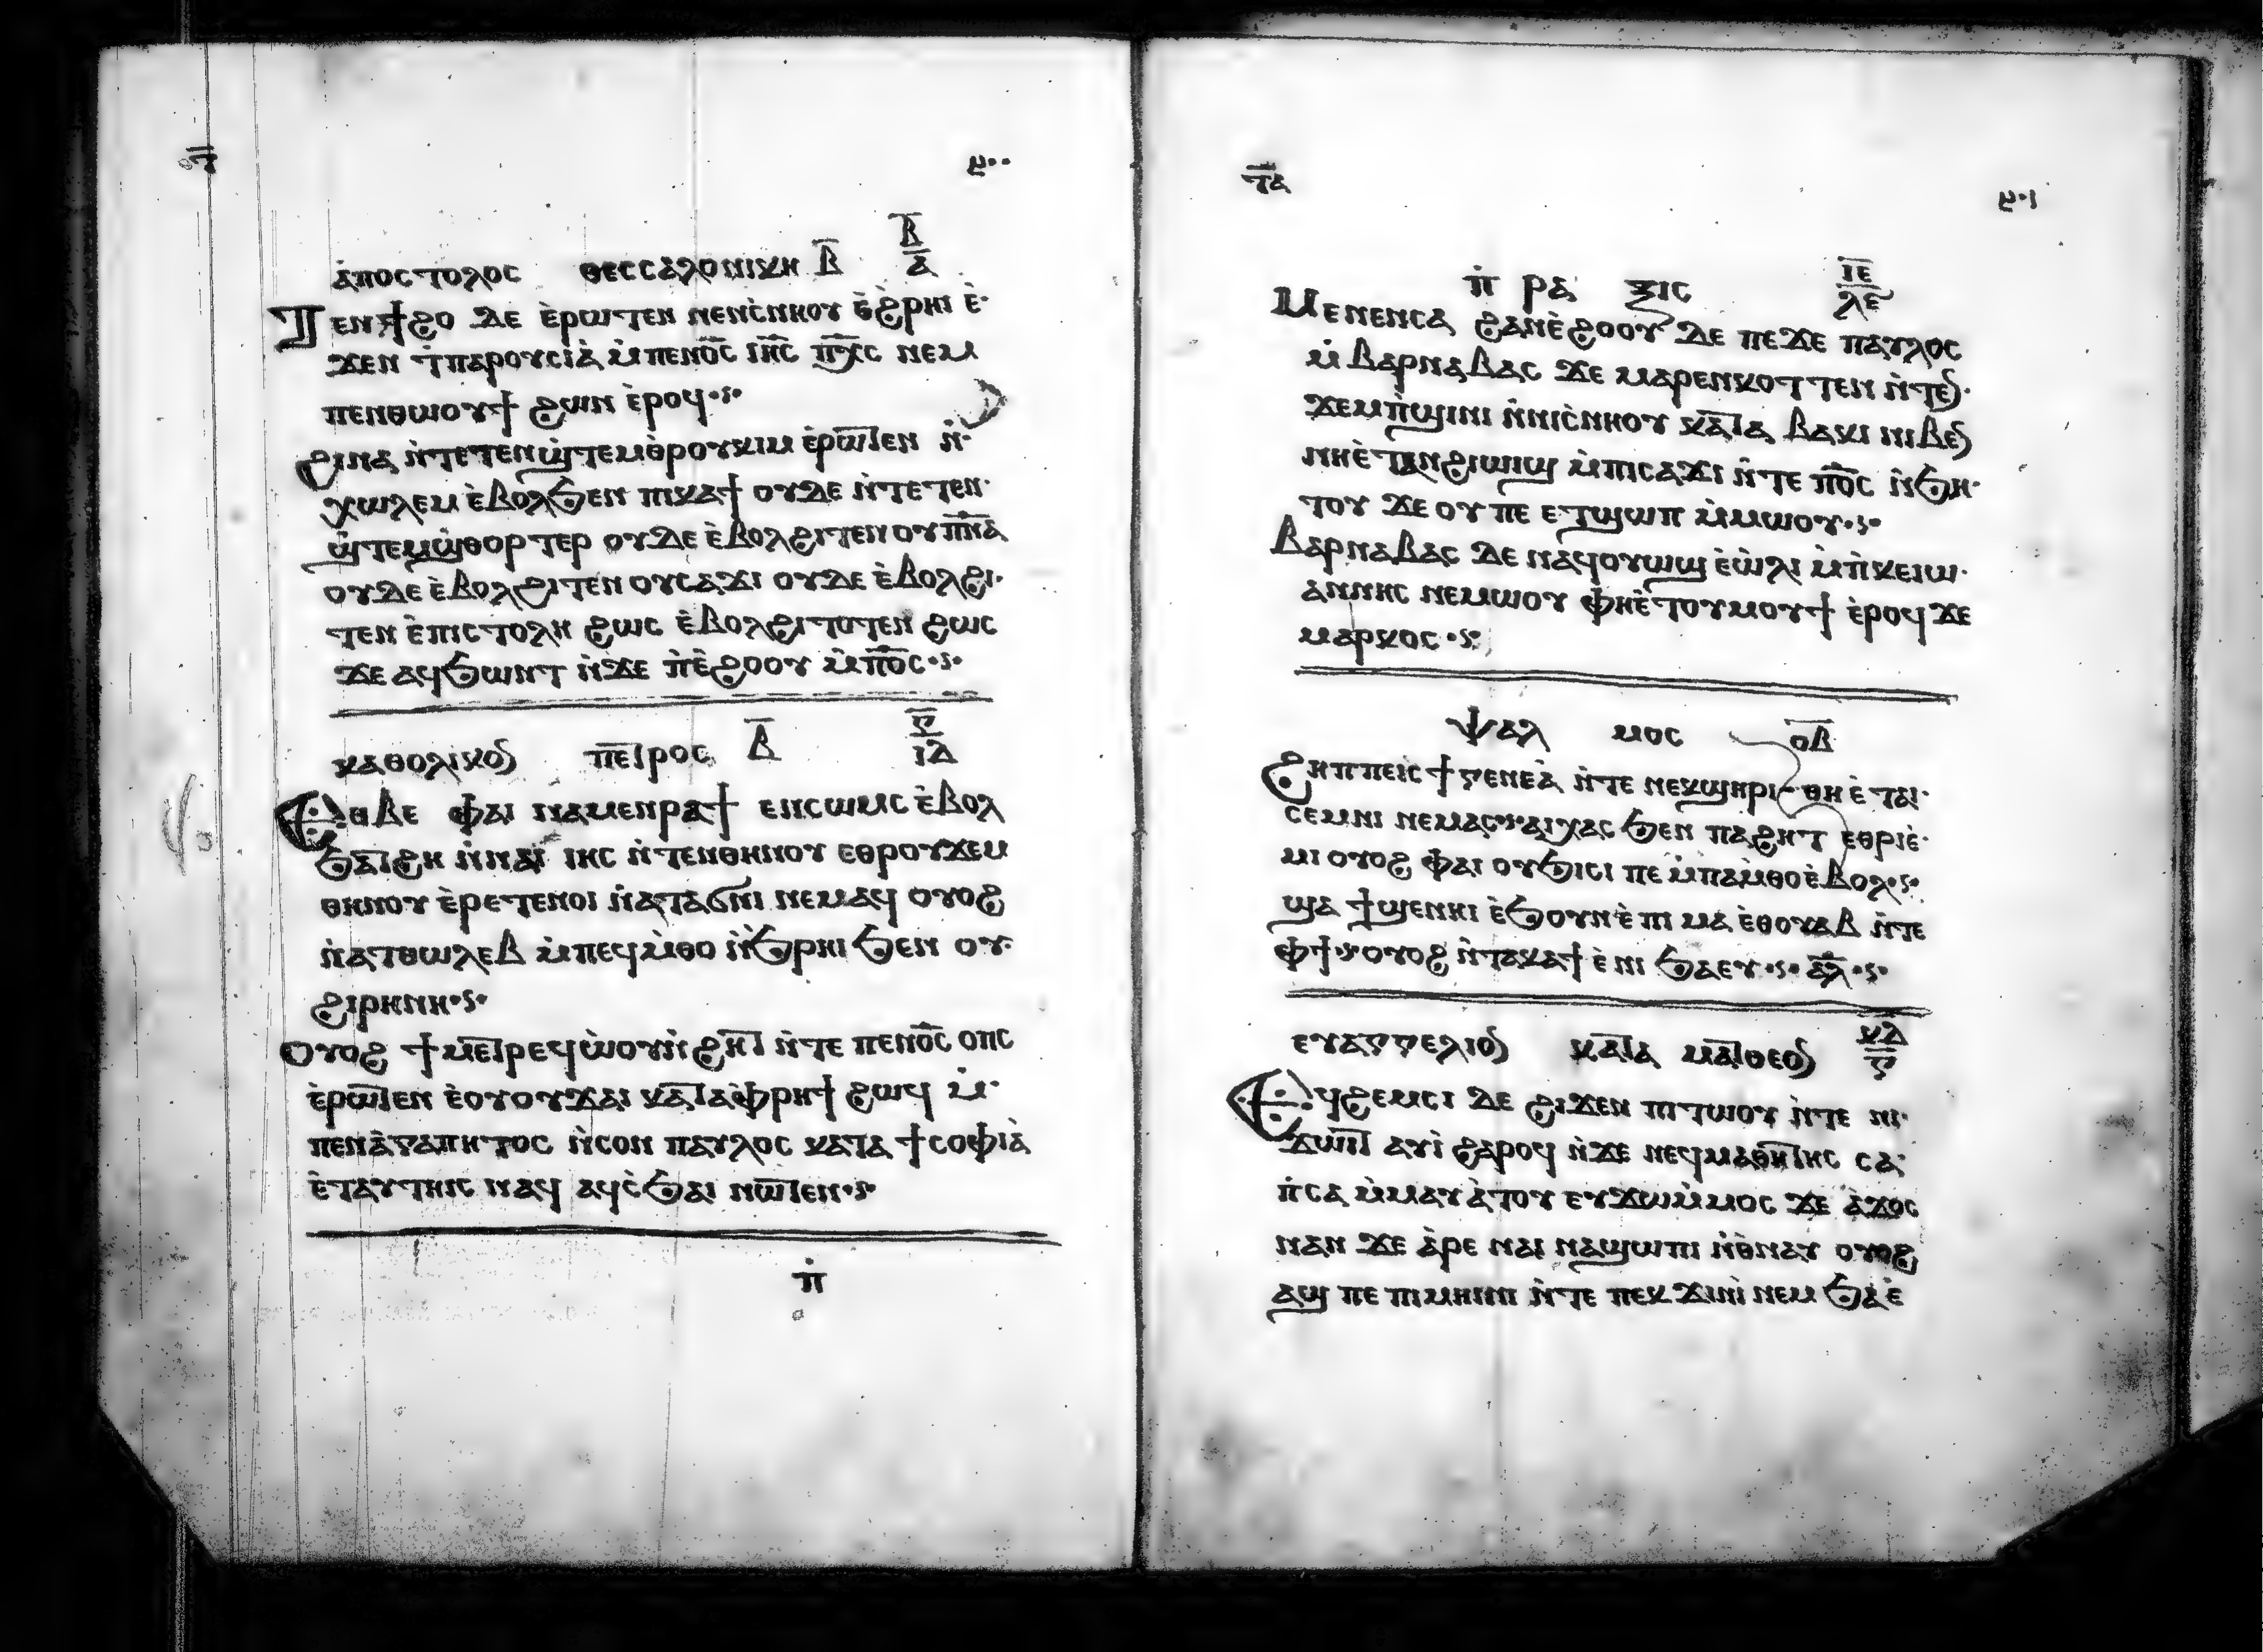 ⲧ̅ ⳉ٠٠
ⲁ̀ⲡⲟⲥⲧⲟⲗⲟⲥ ⲑⲉⲥⲥⲁⲗⲟⲛⲓⲕⲏ ⲃ̅ ⲃ̅ ⲁ̅
Ⲧⲉⲛϯϩⲟ ⲇⲉ ⲉ̀ⲣⲱⲧⲉⲛ ⲛⲉⲛⲥ̀ⲛⲏⲟⲩ ⲉ̀ϩ̀ⲣⲏⲓ ⲉ̀
ϫⲉⲛ ϯⲡⲁⲣⲟⲩⲥⲓⲁ̀ ⲙ̀ⲡⲉⲛⲟ̅ⲥ̅ ⲓⲏ̅ⲥ̅ ⲡⲭ̅ⲥ̅ ⲛⲉⲙ
ⲡⲉⲛⲑⲱⲟⲩϯ ϩⲱⲛ ⲉ̀ⲣⲟϥ
ϩⲓⲛⲁ ⲛ̀ⲧⲉⲧⲉⲛϣ̀ⲧⲉⲙⲑ̀ⲣⲟⲩⲕⲓⲙ ⲉ̀ⲣⲱⲧ̅ⲉⲛ ⲛ̀
ⲭⲱⲗⲉⲙ ⲉ̀ⲃⲟⲗϧⲉⲛ ⲡⲓⲕⲁϯ ⲟⲩⲇⲉ ⲛ̀ⲧⲉⲧⲉⲛ
ϣ̀ⲧⲉⲙϣ̀ⲑⲟⲣⲧⲉⲣ ⲟⲩⲇⲉ ⲉ̀ⲃⲟⲗϩⲓⲧⲉⲛ ⲟⲩⲡ̅ⲛ̅ⲁ̅
ⲟⲩⲇⲉ ⲉ̀ⲃⲟⲗϩⲓⲧⲉⲛ ⲟⲩⲥⲁϫⲓ ⲟⲩⲇⲉ ⲉ̀ⲃⲟⲗϩⲓ
ⲧⲉⲛ ⲉ̀ⲡⲓⲥⲧⲟⲗⲏ ϩⲱⲥ ⲉ̀ⲃⲟⲗϩⲓⲧⲟⲧⲉⲛ ϩⲱⲥ
ϫⲉ ⲁϥϧⲱⲛⲧ ⲛ̀ϫⲉ ⲡⲓⲉ̀ϩⲟⲟⲩ ⲙ̀ⲡⲟ̅ⲥ̅
ⲕⲁⲑⲟⲗⲓⲕⲟⲛ ⲡⲉⲧ̅ⲣⲟⲥ ⲃ̅ ⲅ̅ ⲓⲇ̅
Ⲉⲑⲃⲉ ⲫⲁⲓ ⲛⲁⲙⲉⲛⲣⲁϯ ⲉⲛⲥⲱⲙⲥ ⲉ̀ⲃⲟⲗ
ϧⲁⲧ̅ϩⲏ ⲛ̀ⲛⲁⲓ ⲓⲏⲥ ⲛ̀ⲧⲉⲛⲑⲏⲛⲟⲩ ⲉⲑⲣⲟⲩϫⲉⲙ
ⲑⲏⲛⲟⲩ ⲉ̀ⲣⲉⲧⲉⲛⲟⲓ ⲛ̀ⲁⲧⲁϭⲛⲓ ⲛⲉⲙⲁϥ ⲟⲩⲟϩ
ⲛ̀ⲁⲧⲑⲱⲗⲉⲃ ⲙ̀ⲡⲉϥⲙ̀ⲑⲟ ⲛ̀ϧ̀ⲣⲏⲓ ϧⲉⲛ ⲟⲩ
ϩⲓⲣⲏⲛⲏ
Ⲟⲩⲟϩ ϯⲙⲉⲧ̅ⲣⲉϥⲱ̀ⲟⲩⲛ̀ϩⲏⲧ̅ ⲛ̀ⲧⲉ ⲡⲉⲛⲟ̅ⲥ̅ ⲟⲡⲥ
ⲉ̀ⲣⲱⲧ̅ⲉⲛ ⲉ̀ⲟⲩⲟⲩϫⲁⲓ ⲕⲁⲧ̅ⲁⲫ̀ⲣⲏϯ ϩⲱϥ ⲙ̀
ⲡⲉⲛⲁ̀ⲅⲁⲡⲏⲧⲟⲥ ⲛ̀ⲥⲟⲛ ⲡⲁⲩⲗⲟⲥ ⲕⲁⲧⲁ ϯⲥⲟⲫⲓⲁ̀
ⲉ̀ⲧⲁⲩⲧⲏⲓⲥ ⲛⲁϥ ⲁϥⲥ̀ϧⲁⲓ ⲛⲱⲧ̅ⲉⲛ
ⲡ̀
ⲧ̅ⲁ̅
ⲡ̀ⲣⲁⲝⲓⲥ ⲓⲉ̅ ⲗⲉ̅
Ⲙⲉⲛⲉⲛⲥⲁ ϩⲁⲛⲉ̀ϩⲟⲟⲩ ⲇⲉ ⲡⲉϫⲉ ⲡⲁⲩⲗⲟⲥ
ⲙ̀ⲃⲁⲣⲛⲁⲃⲁⲥ ϫⲉ ⲙⲁⲣⲉⲛⲕⲟⲧⲧⲉⲛ ⲛ̀ⲧⲉⲛ
ϫⲉⲙⲡ̀ϣⲓⲛⲓ ⲛ̀ⲛⲓⲥ̀ⲛⲏⲟⲩ ⲕⲁⲧ̅ⲁ ⲃⲁⲕⲓ ⲛⲓⲃⲉⲛ
ⲛⲏⲉ̀ⲧⲁⲛϩⲓⲱⲓϣ ⲙ̀ⲡⲓⲥⲁϫⲓ ⲛ̀ⲧⲉ ⲡⲟ̅ⲥ̅ ⲛ̀ϧⲏ
ⲧⲟⲩ ϫⲉ ⲟⲩ ⲡⲉ ⲉⲧϣⲱⲡ ⲙ̀ⲙⲱⲟⲩ
Ⲃⲁⲣⲛⲁⲃⲁⲥ ⲇⲉ ⲛⲁϥⲟⲩⲱϣ ⲉ̀ⲱ̀ⲗⲓ ⲙ̀ⲡ̀ⲕⲉⲓⲱ
ⲁⲛⲛⲏⲥ ⲛⲉⲙⲱⲟⲩ ⲫⲏⲉ̀ⲧⲟⲩⲙⲟⲩϯ ⲉ̀ⲣⲟϥ ϫⲉ
ⲙⲁⲣⲕⲟⲥ
ⲯⲁⲗⲙⲟⲥ ⲟⲃ̅
Ϩⲏⲡⲡⲉⲓⲥ ϯⲅⲉⲛⲉⲁ̀ ⲛ̀ⲧⲉ ⲛⲉⲕϣⲏⲣⲓ ⲑⲏⲉ̀ⲧⲁⲓ
ⲥⲉⲙⲛⲓ ⲛⲉⲙⲁⲥ ⲁⲓⲭⲁⲥ ϧⲉⲛ ⲡⲁϩⲏⲧ ⲉⲑⲣⲓⲉ̀
ⲙⲓ ⲟⲩⲟϩ ⲫⲁⲓ ⲟⲩϧⲓⲥⲓ ⲡⲉ ⲙ̀ⲡⲁⲙ̀ⲑⲟⲉ̀ⲃⲟⲗ
ϣⲁ ϯϣⲉⲛⲏⲓ ⲉ̀ϧⲟⲩⲛ ⲉ̀ⲡⲓⲙⲁ ⲉ̀ⲑⲟⲩⲁⲃ ⲛ̀ⲧⲉ
ⲫϯ ⲟⲩⲟϩ ⲛ̀ⲧⲁⲕⲁϯ ⲉ̀ⲛⲓϧⲁⲉⲩ ⲁ̅ⲗ̅
ⲉⲩⲁⲅⲅⲉⲗⲓⲟⲛ ⲕⲁⲧ̅ⲁ ⲙⲁⲧ̅ⲑⲉⲟⲛ ⲕⲇ̅ ⲅ̅
Ⲉϥϩⲉⲙⲥⲓ ⲇⲉ ϩⲓϫⲉⲛ ⲡⲓⲧⲱⲟⲩ ⲛ̀ⲧⲉ ⲛⲓ
ϫⲱⲓⲧ̅ ⲁⲩⲓ̀ ϩⲁⲣⲟϥ ⲛ̀ϫⲉ ⲛⲉϥⲙⲁⲑⲏⲧ̅ⲏⲥ ⲥⲁ
ⲡ̀ⲥⲁ ⲙ̀ⲙⲁⲩⲁ̀ⲧⲟⲩ ⲉⲩϫⲱⲙ̀ⲙⲟⲥ ϫⲉ ⲁ̀ϫⲟⲥ
ⲛⲁⲛ ϫⲉ ⲁ̀ⲣⲉ ⲛⲁⲓ ⲛⲁϣⲱⲡⲓ ⲛ̀ⲑⲛⲁⲩ ⲟⲩⲟϩ
ⲁϣ ⲡⲉ ⲡⲓⲙⲏⲓⲛⲓ ⲛ̀ⲧⲉ ⲡⲉⲕϫⲓⲛⲓ̀ ⲛⲉⲙ ϧⲁⲉ̀